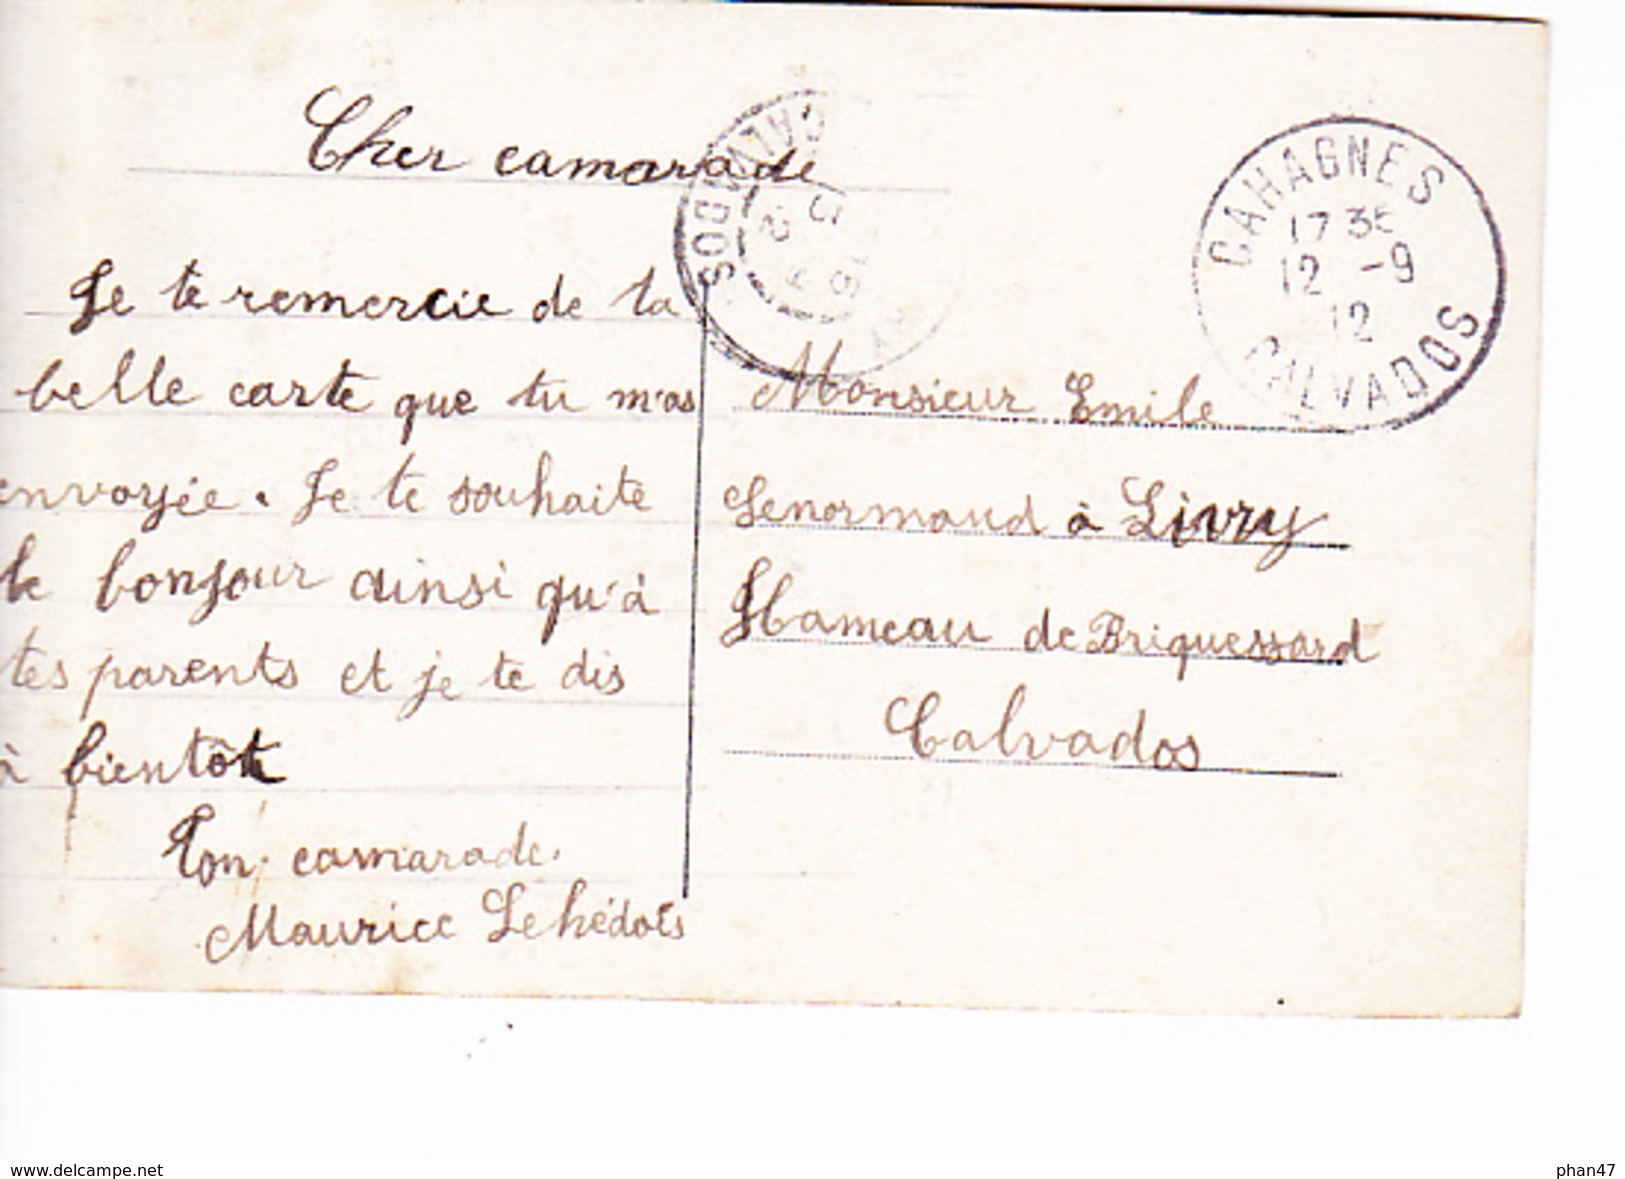 Cher camarade
Je te remercie de ta
belle carte que tu m'as
envoyée. Je te souhaite
le bonjour ainsi qu'à
tes parents et je te dis
à bientôt
Ton camarade.
Maurice Lehédois
CALVADOS
CAHAGNES
17 35
12 -9
12
CALVADOS
Monsieur Emile
Lenormand à Livry
Hameau de Briquessard
Calvados
www.delcampe.net
phan47